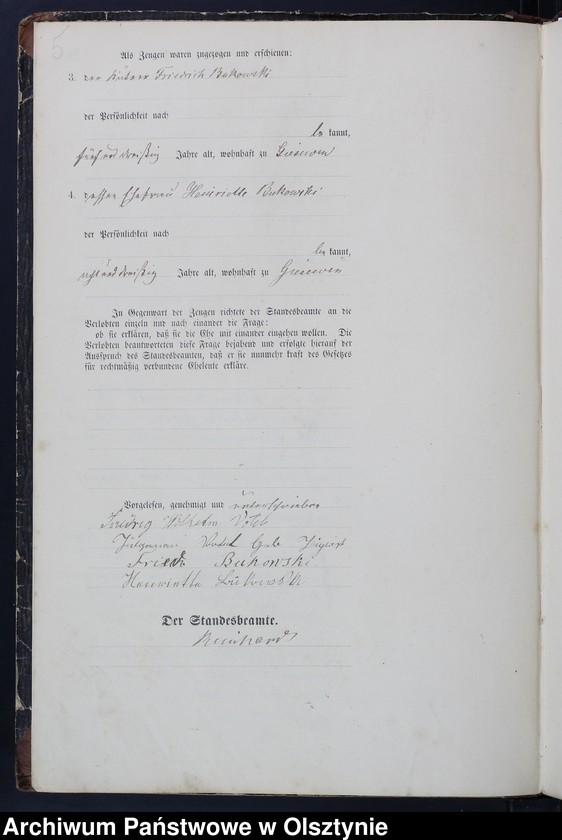 Als Zeugen waren zugezogen und erschienen:
3. der Friedrich Bukowski
der Persönlichkeit nach
be kannt,
fünf und dreißig Jahre alt, wohnhaft zu
4. dessen Ehefrau Henriette Bukowski
der Persönlichkeit nach
be kannt,
acht und dreißig Jahre alt, wohnhaft zu
In Gegenwart der Zeugen richtete der Standesbeamte an die
Verlobten einzeln und nach einander die Frage:
ob sie erklären, daß sie die Ehe mit einander eingehen wollen. Die
Verlobten beantworteten diese Frage bejahend und erfolgte hierauf der
Ausspruch des Standesbeamten, daß er sie nunmehr kraft des Gesetzes
für rechtmäßig verbundene Eheleute erkläre.
Vorgelesen, genehmigt und unterschrieben
Wilhelm
Friedr Bukowski
Henriette Bukowski
Der Standesbeamte.
Reinhard
Archiwum Państwowe w Olsztynie